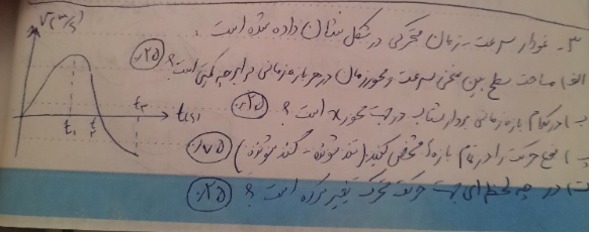 ۳- نمودار سرعت - زمان متحرکی در شکل نشان داده شده است.
الف) مساحت سطح بین منحنی سرعت و محور زمان در هر بازه زمانی برابر چه کمیتی است؟ (۰/۲۵)
ب) در کدام بازه زمانی بردار شتاب در جهت محور x است؟ (۰/۲۵)
پ) نوع حرکت را در تمام بازه ها مشخص کنید. (تند شونده - کند شونده) (۰/۷۵)
ت) در چه لحظه ای جهت حرکت متحرک تغییر کرده است؟ (۰/۲۵)
V(m/s)
t₁ t₂ t₃ t(s)